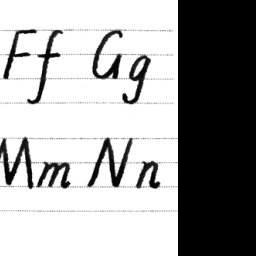 Ff Gg
Mm Nn